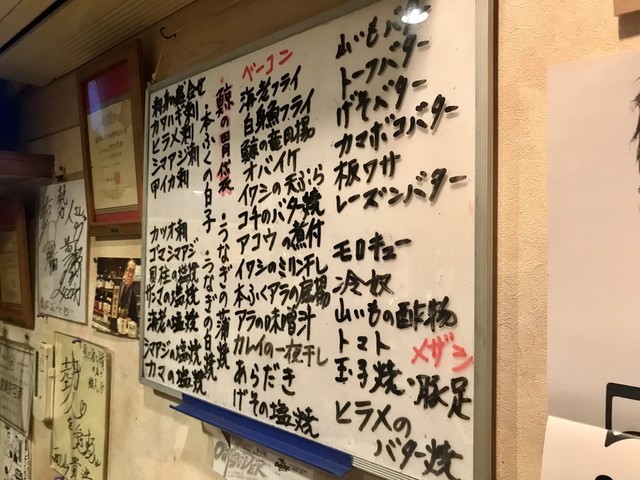 刺身の盛合せ
カワハギ刺
ヒラメ刺
シマアジ刺
甲イカ刺
カツオ刺
ゴマシマアジ
貝柱の塩焼
サンマの塩焼
海老の塩焼
シマアジの塩焼
カマの塩焼
鯨の胃袋
本ふくの白子
うなぎの蒲焼
うなぎの白焼
ベーコン
海老フライ
白身魚フライ
鯨の竜田揚
オバイケ
イワシの天ぷら
コチのバター焼
アコウの煮付
イワシのミリン干し
本ふくアラの唐揚
アラの味噌汁
カレイの一夜干し
あらだき
げその塩焼
山いもバター
トーフバター
げそバター
カマボコバター
板ワサ
レーズンバター
モロキュー
冷奴
山いもの酢物
トマト
メザシ
玉子焼・豚足
ヒラメの
バター焼